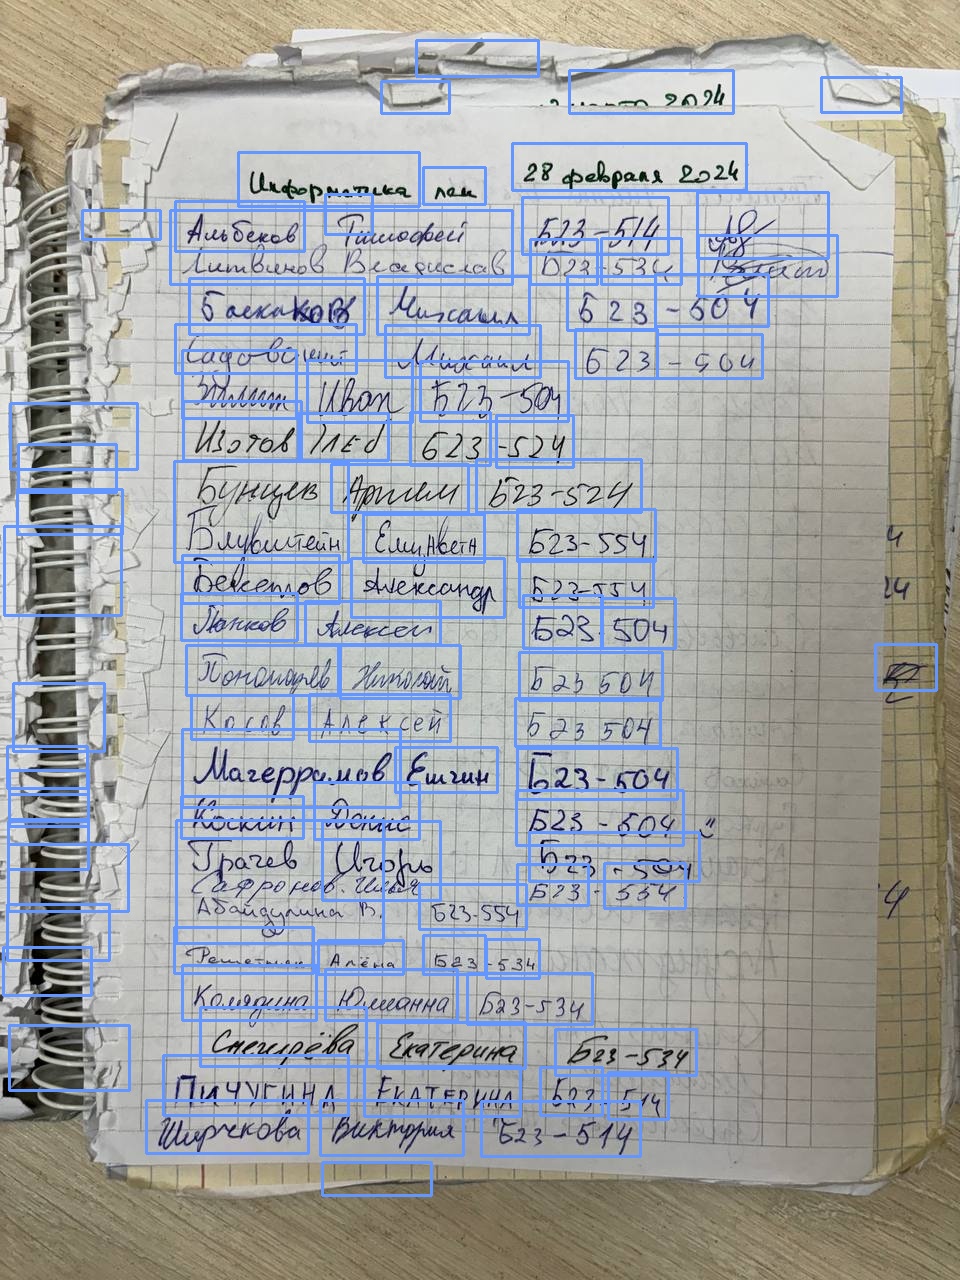 марта 2024
Информатика лек 28 февраля 2024
Альбеков Тимофей Б23-514
Литвинов Владислав Б23-534
Баскаков Михаил Б23-504
Садовский Михаил Б23-504
Иван Б23-504
Изотов Глеб Б23-524
Бунцев Артем Б23-524
Блувштейн Б23-554
Бекетов Александр Б23-554
Панков Алексей Б23 504
Пономарев Николай Б23 504
Косов Алексей Б23 504
Магеррамов Ешгин Б23-504
Кокин Денис Б23-504
Грачев Игорь Б23-504
Сафронов Илья Б23-554
Абайдулина В. Б23-554
Алёна Б23-534
Колядина Юлианна Б23-534
Снегирёва Екатерина Б23-534
ПИЧУГИНА ЕКАТЕРИНА Б23-514
Ширчкова Виктория Б23-514